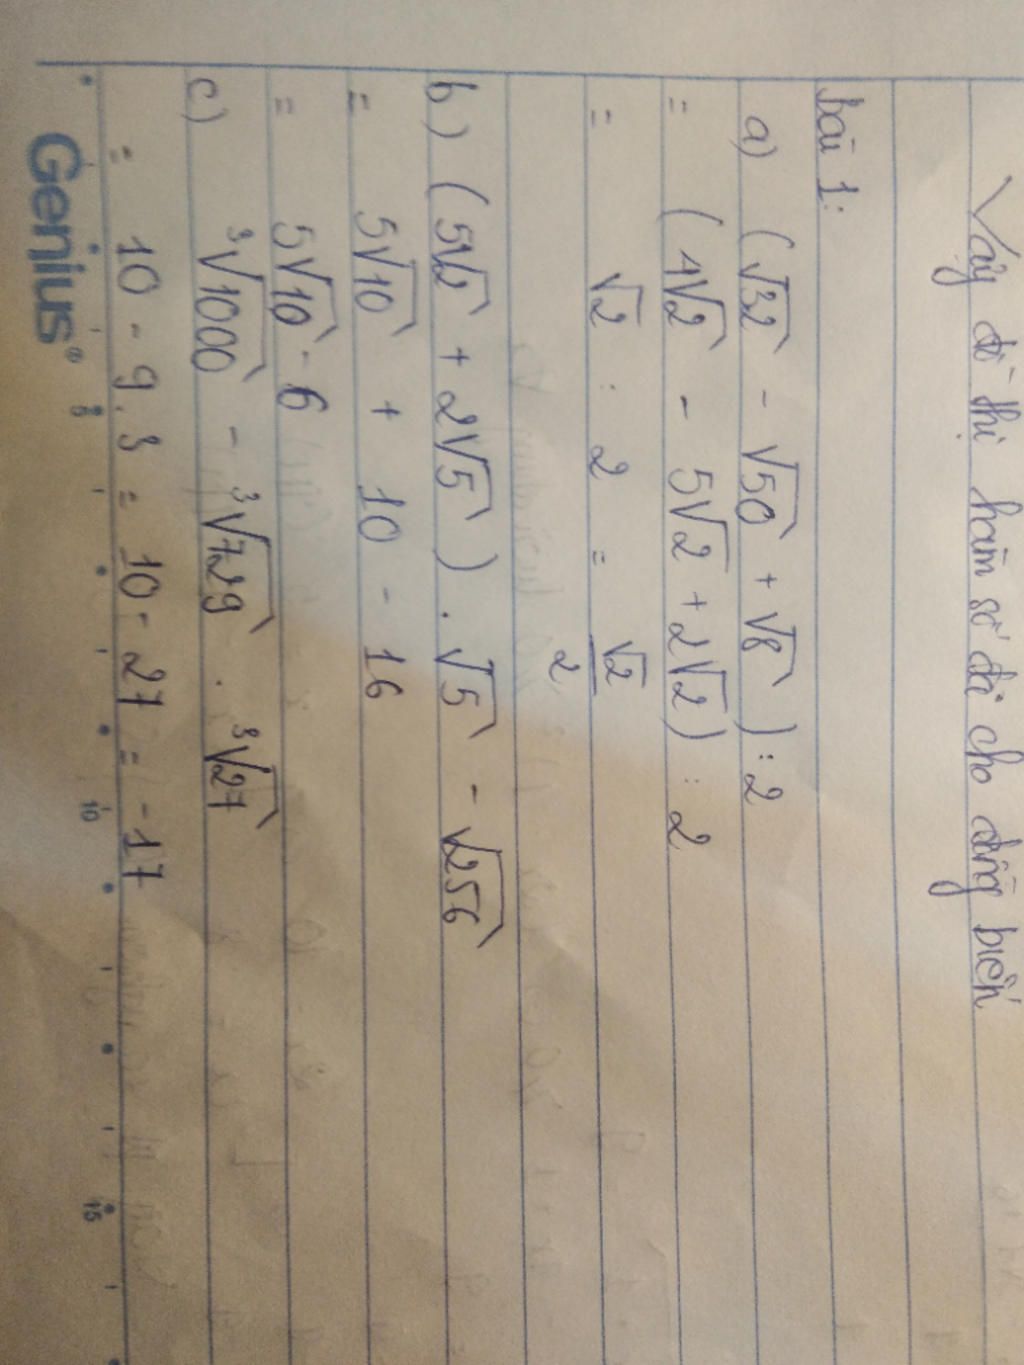 Vậy đồ thị hàm số đã cho đồng biến
bài 1:
a) (√32 - √50 + √8) : 2
= (4√2 - 5√2 + 2√2) : 2
= √2 : 2 = √2/2
b) (5√2 + 2√5) . √5 - √256
= 5√10 + 10 - 16
= 5√10 - 6
c) ³√1000 - ³√729 . ³√27
= 10 - 9.3 = 10 - 27 = -17
5 10 15
Genius®